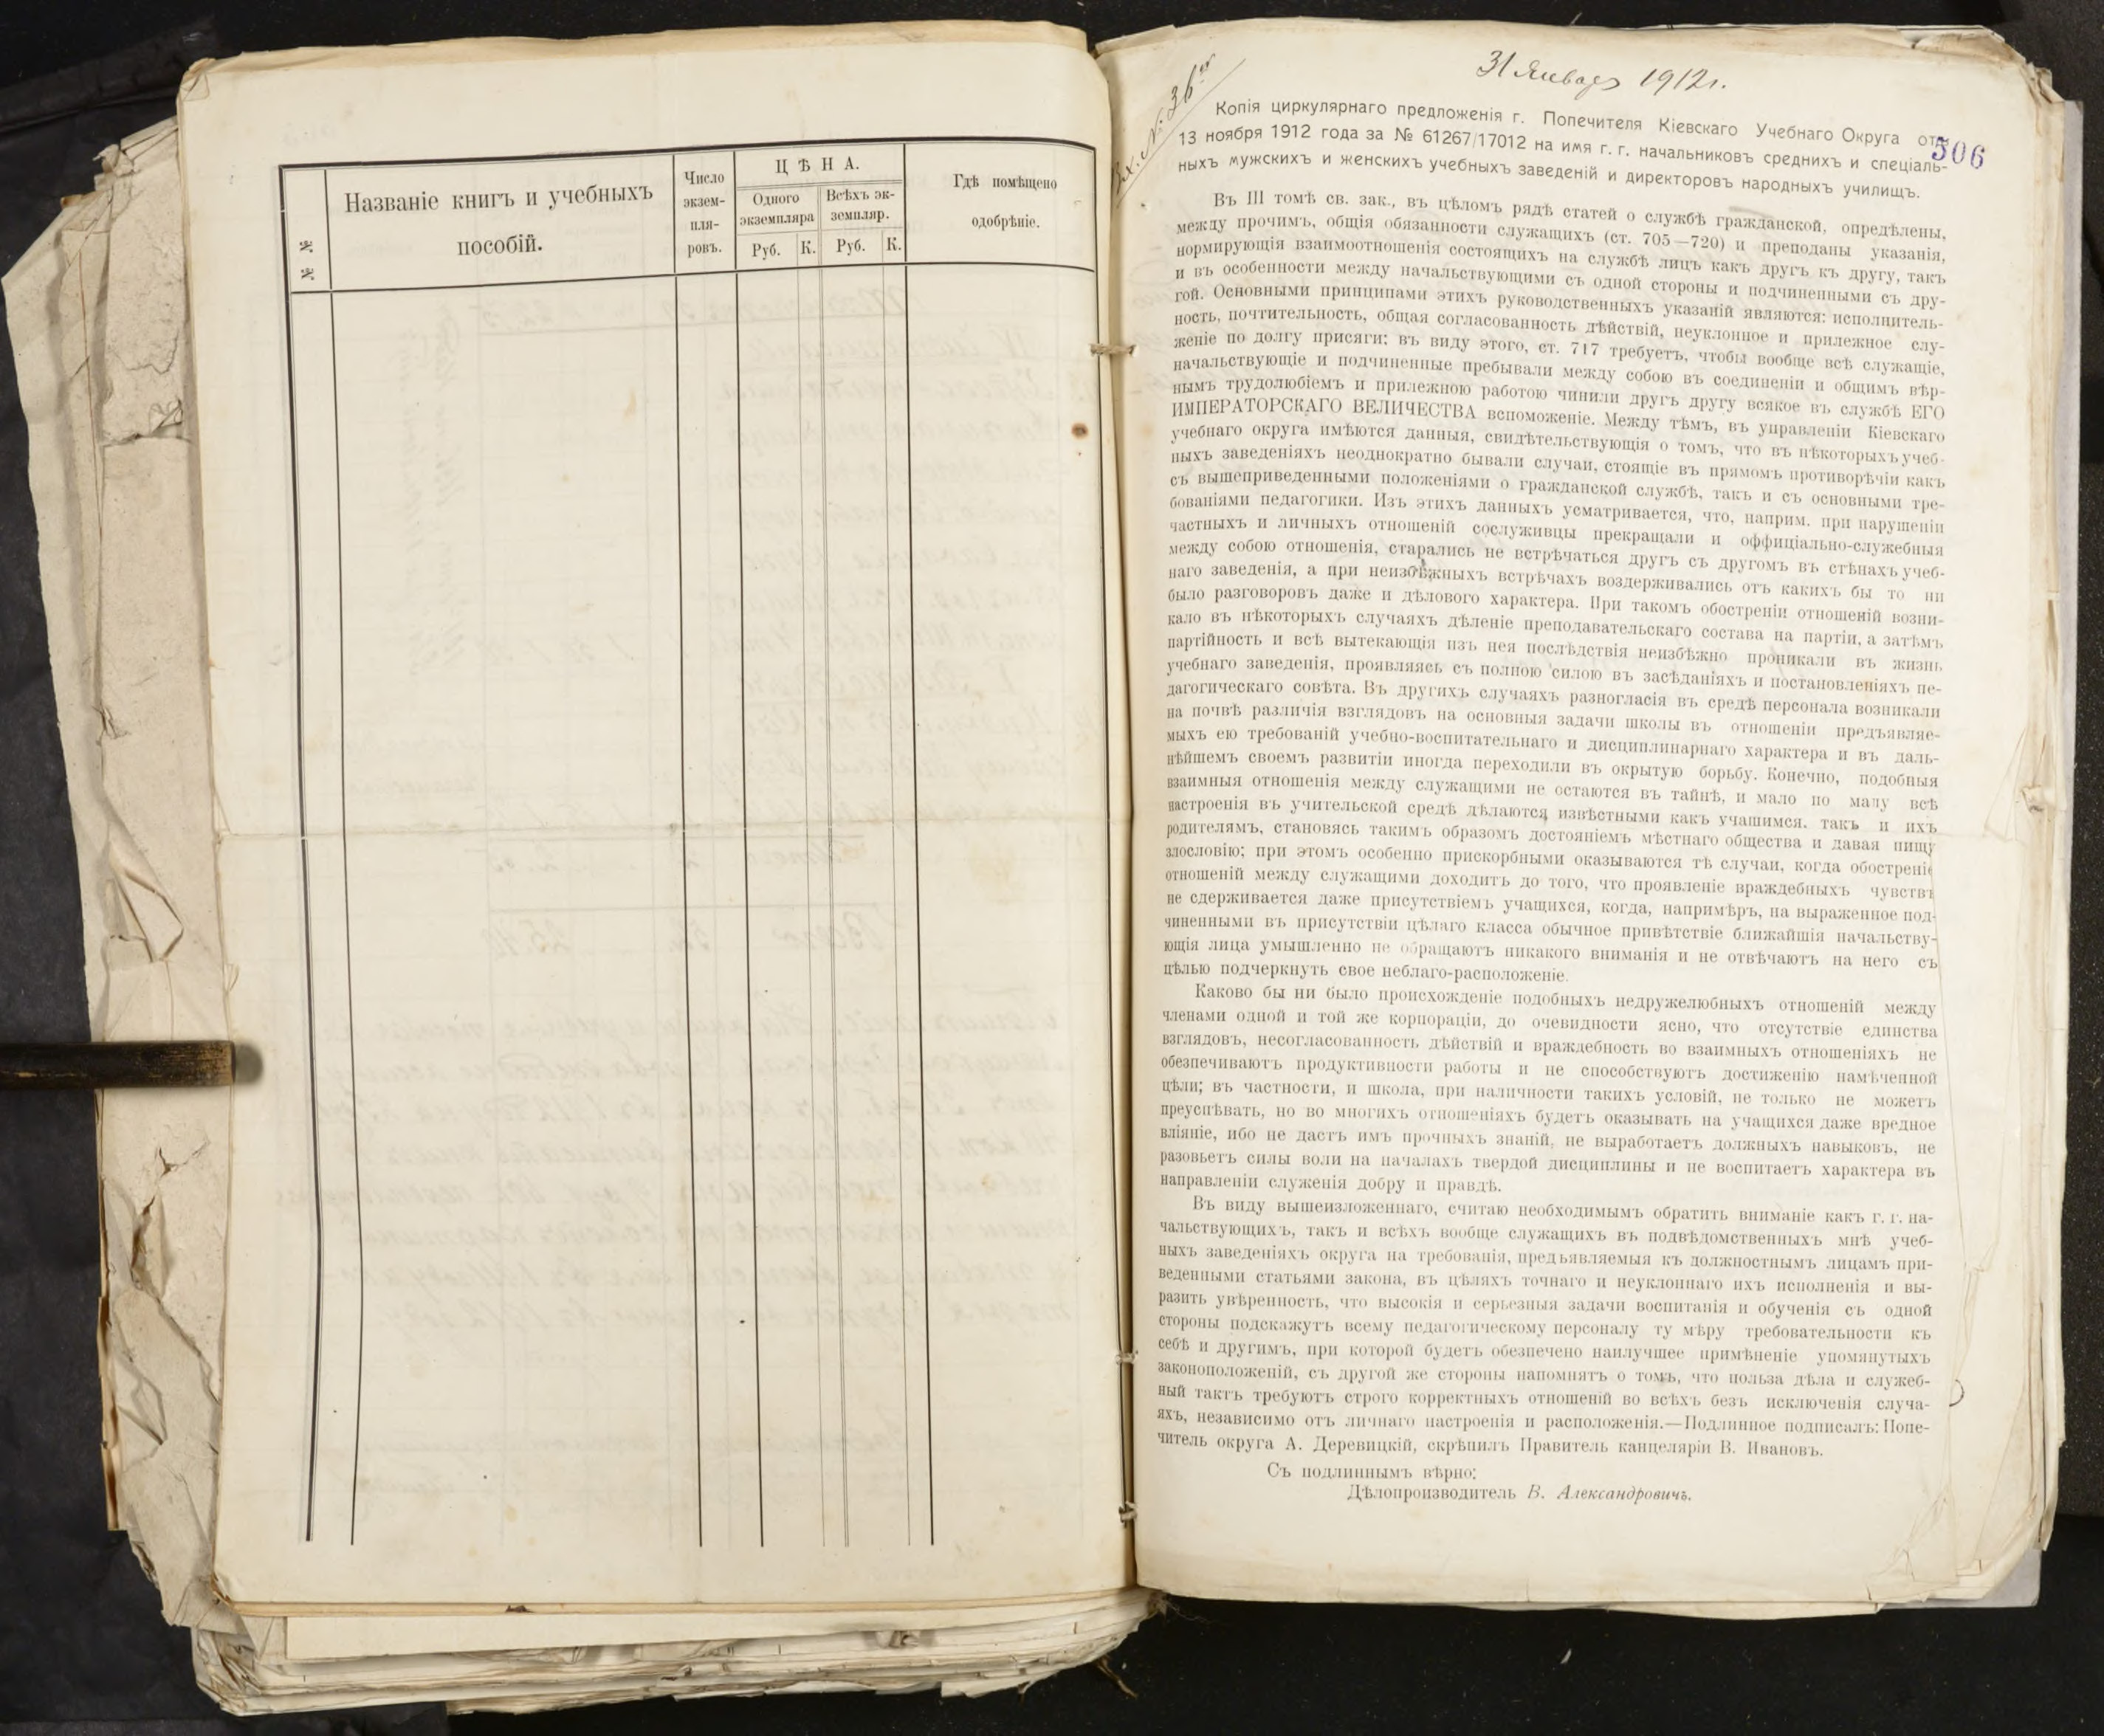 № №
Названіе книгъ и учебныхъ
пособій.
Число
экзем-
пля-
ровъ.
ЦѢНА.
Одного
экземпляра
Всѣхъ эк-
земпляр.
Руб.
К.
Руб.
К.
Гдѣ помѣщено
одобрѣніе.
Вх. № 36
31 Января 1912 г.
506
Копія циркулярнаго предложенія г. Попечителя Кіевскаго Учебнаго Округа отъ
13 ноября 1912 года за № 61267/17012 на имя г. г. начальниковъ среднихъ и спеціаль-
ныхъ мужскихъ и женскихъ учебныхъ заведеній и директоровъ народныхъ училищъ.
Въ III томѣ св. зак., въ цѣломъ рядѣ статей о службѣ гражданской, опредѣлены,
между прочимъ, общія обязанности служащихъ (ст. 705—720) и преподаны указанія,
нормирующія взаимоотношенія состоящихъ на службѣ лицъ какъ другъ къ другу, такъ
и въ особенности между начальствующими съ одной стороны и подчиненными съ дру-
гой. Основными принципами этихъ руководственныхъ указаній являются: исполнитель-
ность, почтительность, общая согласованность дѣйствій, неуклонное и прилежное слу-
женіе по долгу присяги; въ виду этого, ст. 717 требуетъ, чтобы вообще всѣ служащіе,
начальствующіе и подчиненные пребывали между собою въ соединеніи и общимъ вѣр-
нымъ трудолюбіемъ и прилежною работою чинили другъ другу всякое въ службѣ ЕГО
ИМПЕРАТОРСКАГО ВЕЛИЧЕСТВА вспоможеніе. Между тѣмъ, въ управленіи Кіевскаго
учебнаго округа имѣются данныя, свидѣтельствующія о томъ, что въ нѣкоторыхъ учеб-
ныхъ заведеніяхъ неоднократно бывали случаи, стоящіе въ прямомъ противорѣчіи какъ
съ вышеприведенными положеніями о гражданской службѣ, такъ и съ основными тре-
бованіями педагогики. Изъ этихъ данныхъ усматривается, что, наприм. при нарушеніи
частныхъ и личныхъ отношеній сослуживцы прекращали и оффиціально-служебныя
между собою отношенія, старались не встрѣчаться другъ съ другомъ въ стѣнахъ учеб-
наго заведенія, а при неизбѣжныхъ встрѣчахъ воздерживались отъ какихъ бы то ни
было разговоровъ даже и дѣлового характера. При такомъ обостреніи отношеній возни-
кало въ нѣкоторыхъ случаяхъ дѣленіе преподавательскаго состава на партіи, а затѣмъ
партійность и всѣ вытекающія изъ нея послѣдствія неизбѣжно проникали въ жизнь
учебнаго заведенія, проявляясь съ полною силою въ засѣданіяхъ и постановленіяхъ пе-
дагогическаго совѣта. Въ другихъ случаяхъ разногласія въ средѣ персонала возникали
на почвѣ различія взглядовъ на основныя задачи школы въ отношеніи предъявляе-
мыхъ ею требованій учебно-воспитательнаго и дисциплинарнаго характера и въ даль-
нѣйшемъ своемъ развитіи иногда переходили въ окрытую борьбу. Конечно, подобныя
взаимныя отношенія между служащими не остаются въ тайнѣ, и мало по малу всѣ
настроенія въ учительской средѣ дѣлаются извѣстными какъ учашимся, такъ и ихъ
родителямъ, становясь такимъ образомъ достояніемъ мѣстнаго общества и давая пищу
злословію; при этомъ особенно прискорбными оказываются тѣ случаи, когда обостреніе
отношеній между служащими доходитъ до того, что проявленіе враждебныхъ чувствъ
не сдерживается даже присутствіемъ учащихся, когда, напримѣръ, на выраженное под-
чиненными въ присутствіи цѣлаго класса обычное привѣтствіе ближайшія начальству-
ющія лица умышленно не обращаютъ никакого вниманія и не отвѣчаютъ на него съ
цѣлью подчеркнуть свое неблаго-расположеніе.
Каково бы ни было происхожденіе подобныхъ недружелюбныхъ отношеній между
членами одной и той же корпораціи, до очевидности ясно, что отсутствіе единства
взглядовъ, несогласованность дѣйствій и враждебность во взаимныхъ отношеніяхъ не
обезпечиваютъ продуктивности работы и не способствуютъ достиженію намѣченной
цѣли; въ частности, и школа, при наличности такихъ условій, не только не можетъ
преуспѣвать, но во многихъ отношеніяхъ будетъ оказывать на учащихся даже вредное
вліяніе, ибо не дастъ имъ прочныхъ знаній, не выработаетъ должныхъ навыковъ, не
разовьетъ силы воли на началахъ твердой дисциплины и не воспитаетъ характера въ
направленіи служенія добру и правдѣ.
Въ виду вышеизложеннаго, считаю необходимымъ обратить вниманіе какъ г. г. на-
чальствующихъ, такъ и всѣхъ вообще служащихъ въ подвѣдомственныхъ мнѣ учеб-
ныхъ заведеніяхъ округа на требованія, предъявляемыя къ должностнымъ лицамъ при-
веденными статьями закона, въ цѣляхъ точнаго и неуклоннаго ихъ исполненія и вы-
разить увѣренность, что высокія и серьезныя задачи воспитанія и обученія съ одной
стороны подскажутъ всему педагогическому персоналу ту мѣру требовательности къ
себѣ и другимъ, при которой будетъ обезпечено наилучшее примѣненіе упомянутыхъ
законоположеній, съ другой же стороны напомнятъ о томъ, что польза дѣла и служеб-
ный тактъ требуютъ строго корректныхъ отношеній во всѣхъ безъ исключенія случа-
яхъ, независимо отъ личнаго настроенія и расположенія.—Подлинное подписалъ: Попе-
читель округа А. Деревицкій, скрѣпилъ Правитель канцеляріи В. Ивановъ.
Съ подлиннымъ вѣрно:
Дѣлопроизводитель В. Александровичъ.